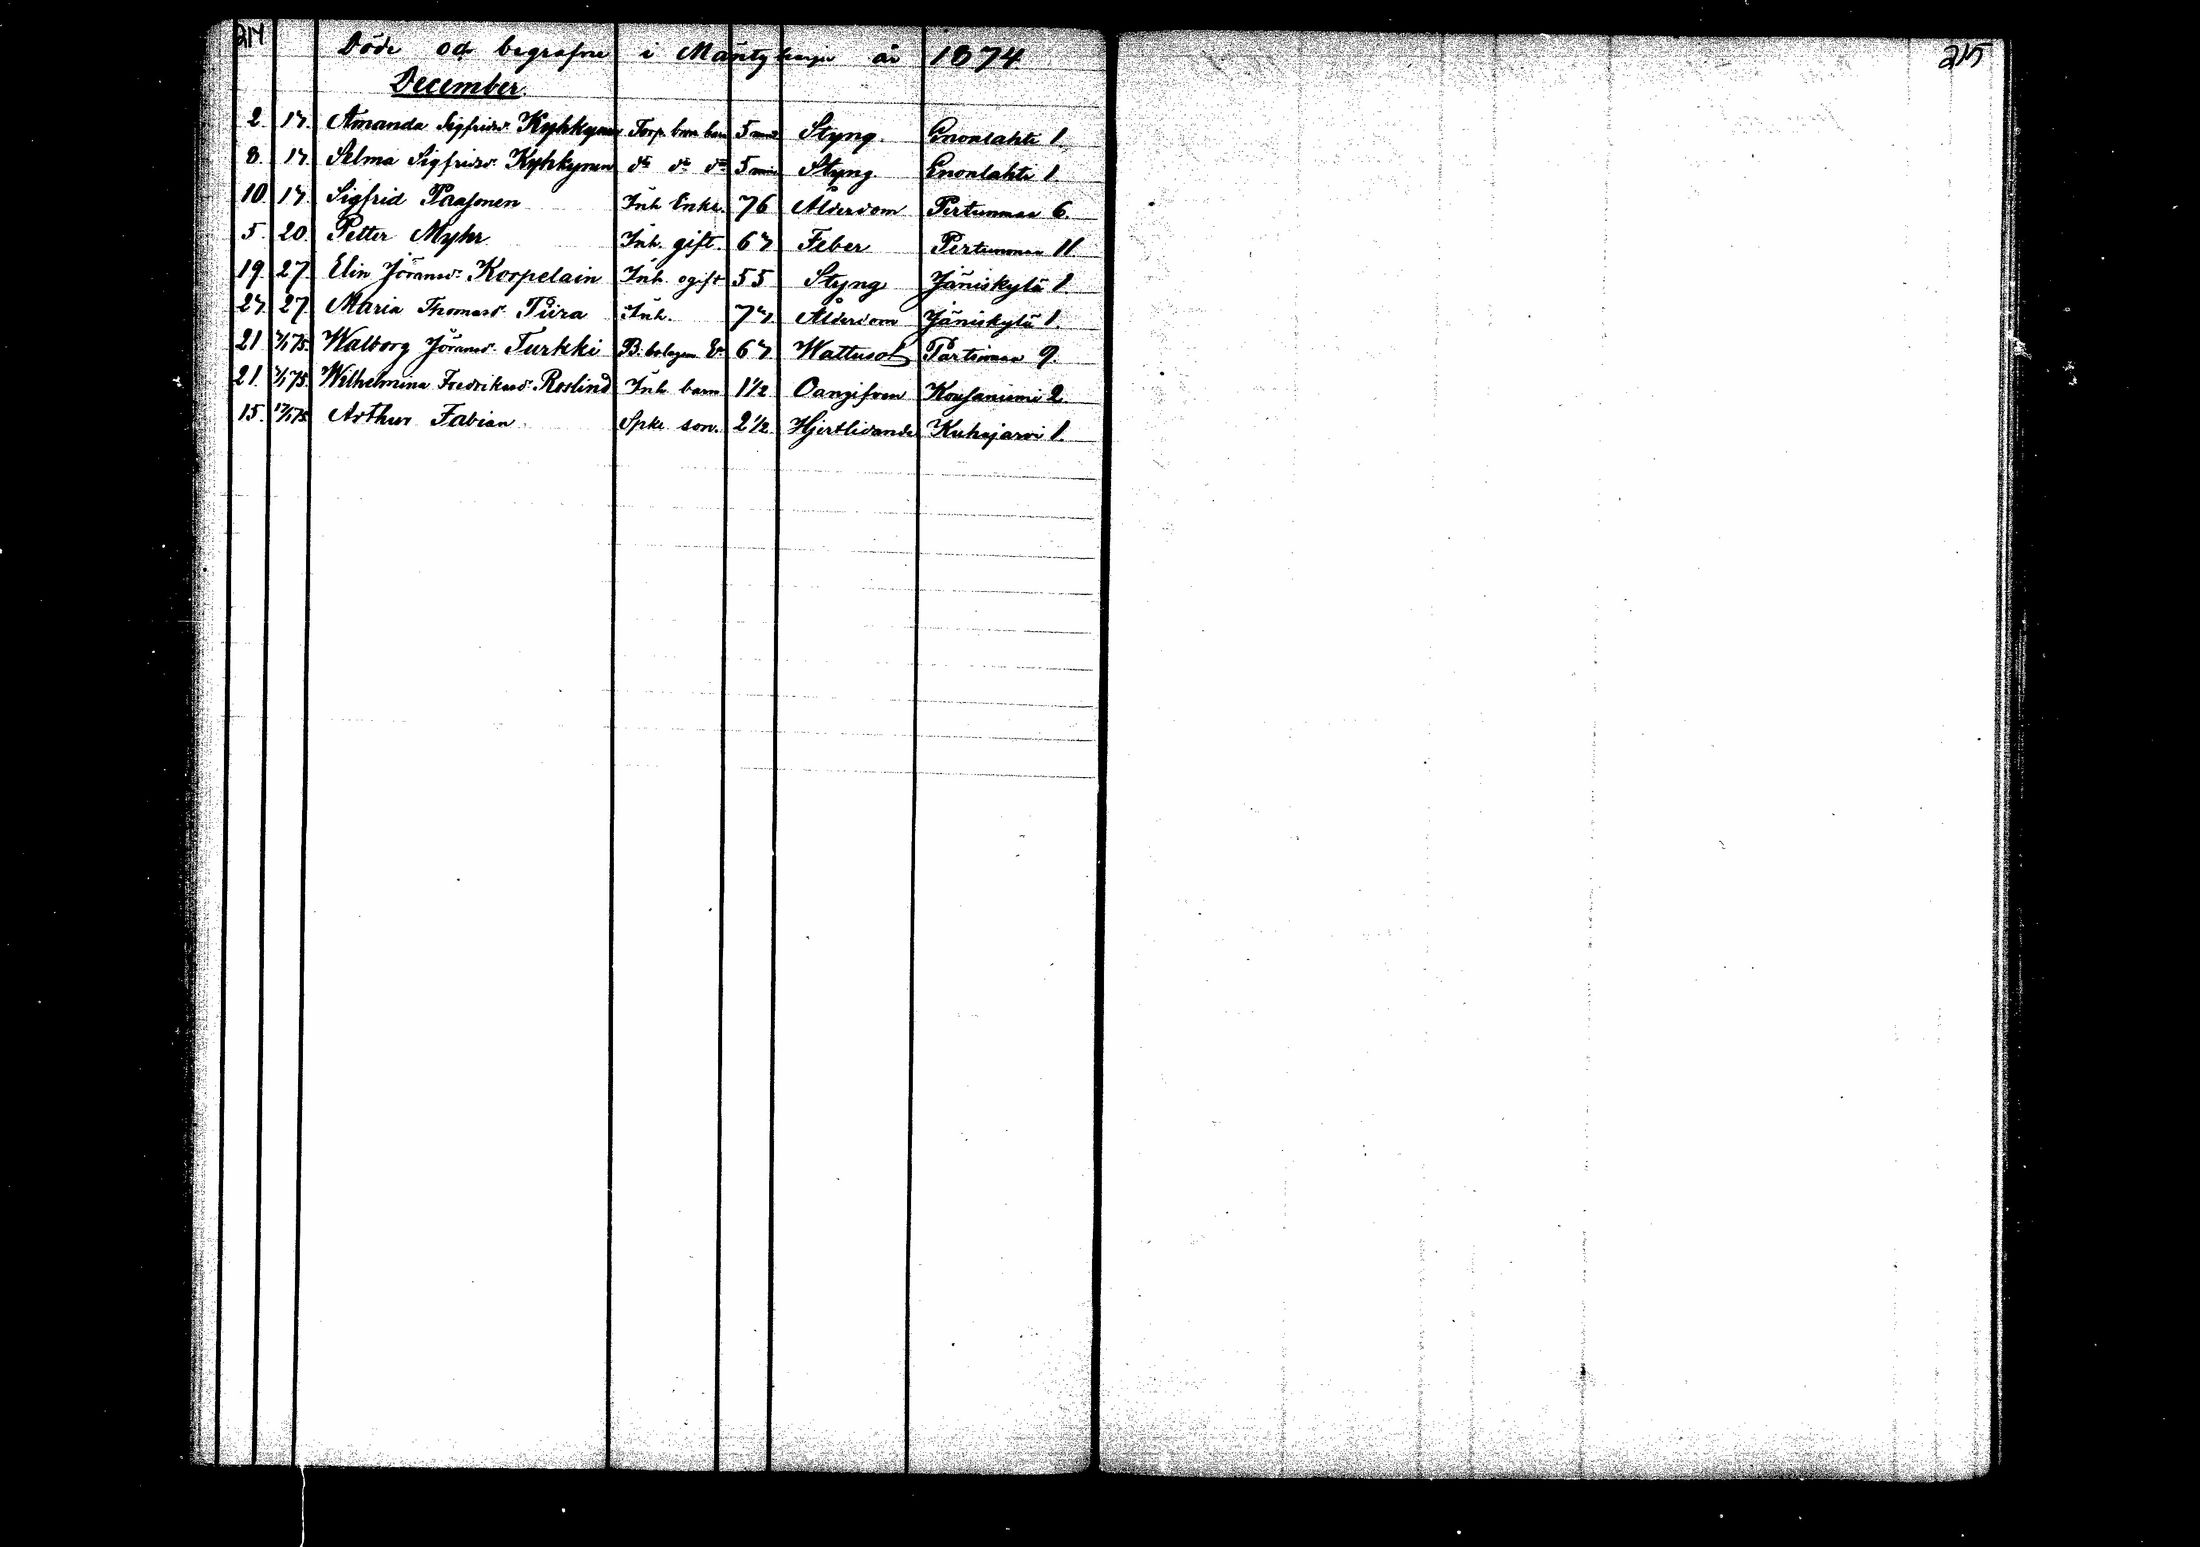 214
Döde och begrafne i Mäntyharju år 1874
December.
2. 17. Amanda Sigfridsd. Kyhkynen Torp. barn 5 mån Styng. Enonlahti 1.
8. 17. Selma Sigfridsd. Kyhkynen do do do 5 min Styng. Enonlahti 1.
10. 17. Sigfrid Paasonen Inh. Enkl. 76 Ålderdom Pertunmaa 6.
5. 20. Petter Myhr Inh. gift. 67 Feber Pertunmaa 11.
19. 27. Elin Jöransd. Korpelain Inh. ogift 55 Styng Jäniskylä 1.
27. 27. Maria Thomasd. Piira Inh. 77. Ålderdom Jäniskylä 1.
21 3/1 75. Walborg Jöransd. Turkki B. bolagem. E. 67 Wattusot Partimaa 9.
21. 3/1 75. Wilhelmina Fredriksd. Roslind Inh. barn 1 1/2 Oangifven Koirsaniemi 2.
15. 17/1 75. Arthur Fabian Spke son. 2 1/2 Hjertlidande Kuhajärvi 1.
215